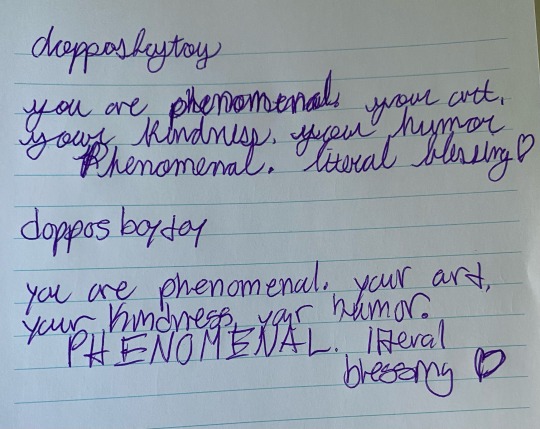 dopposboytoy
you are phenomenal. your art.
your kindness. your humor
Phenomenal. literal blessing ♡
doppos boytoy
you are phenomenal. your art,
your kindness, your humor.
PHENOMENAL. literal
blessing ♡